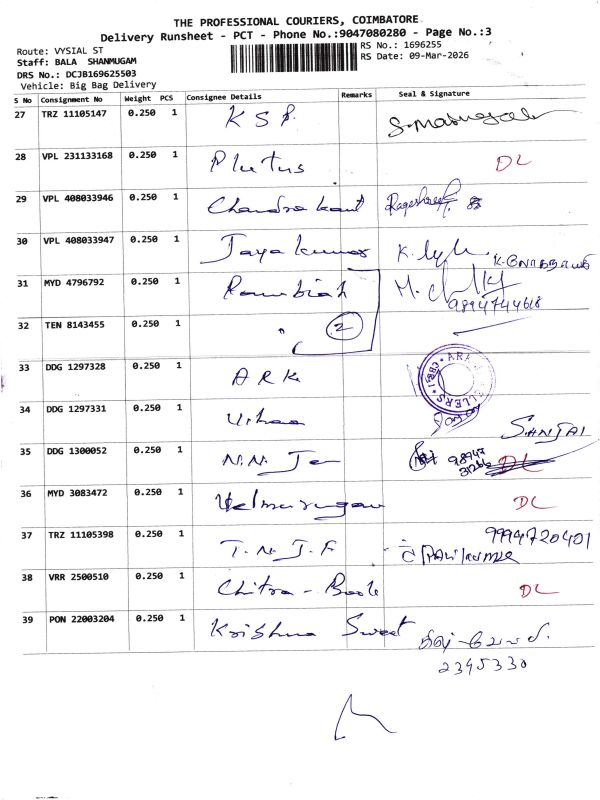 THE PROFESSIONAL COURIERS, COIMBATORE
Delivery Runsheet - PCT - Phone No.:9047080280 - Page No.:3
Route: VYSIAL ST
RS No.: 1696255
Staff: BALA SHANMUGAM
RS Date: 09-Mar-2026
DRS No.: DCJB169625503
Vehicle: Big Bag Delivery
S No Consignment No Weight PCS Consignee Details Remarks Seal & Signature
27 TRZ 11105147 0.250 1 K S P.
28 VPL 231133168 0.250 1 Plutus DL
29 VPL 408033946 0.250 1 Chandrakant
30 VPL 408033947 0.250 1 Jayakumar
31 MYD 4796792 0.250 1 Rambiah 9894744618
32 TEN 8143455 0.250 1 " 2
33 DDG 1297328 0.250 1 A R K
34 DDG 1297331 0.250 1
35 DDG 1300052 0.250 1 N.N. SANJAI
36 MYD 3083472 0.250 1 Velmurugan DL
37 TRZ 11105398 0.250 1 T. N. J. F 9994720401
38 VRR 2500510 0.250 1 Chitra - Book DL
39 PON 22003204 0.250 1 Krishna Sweet
2345330